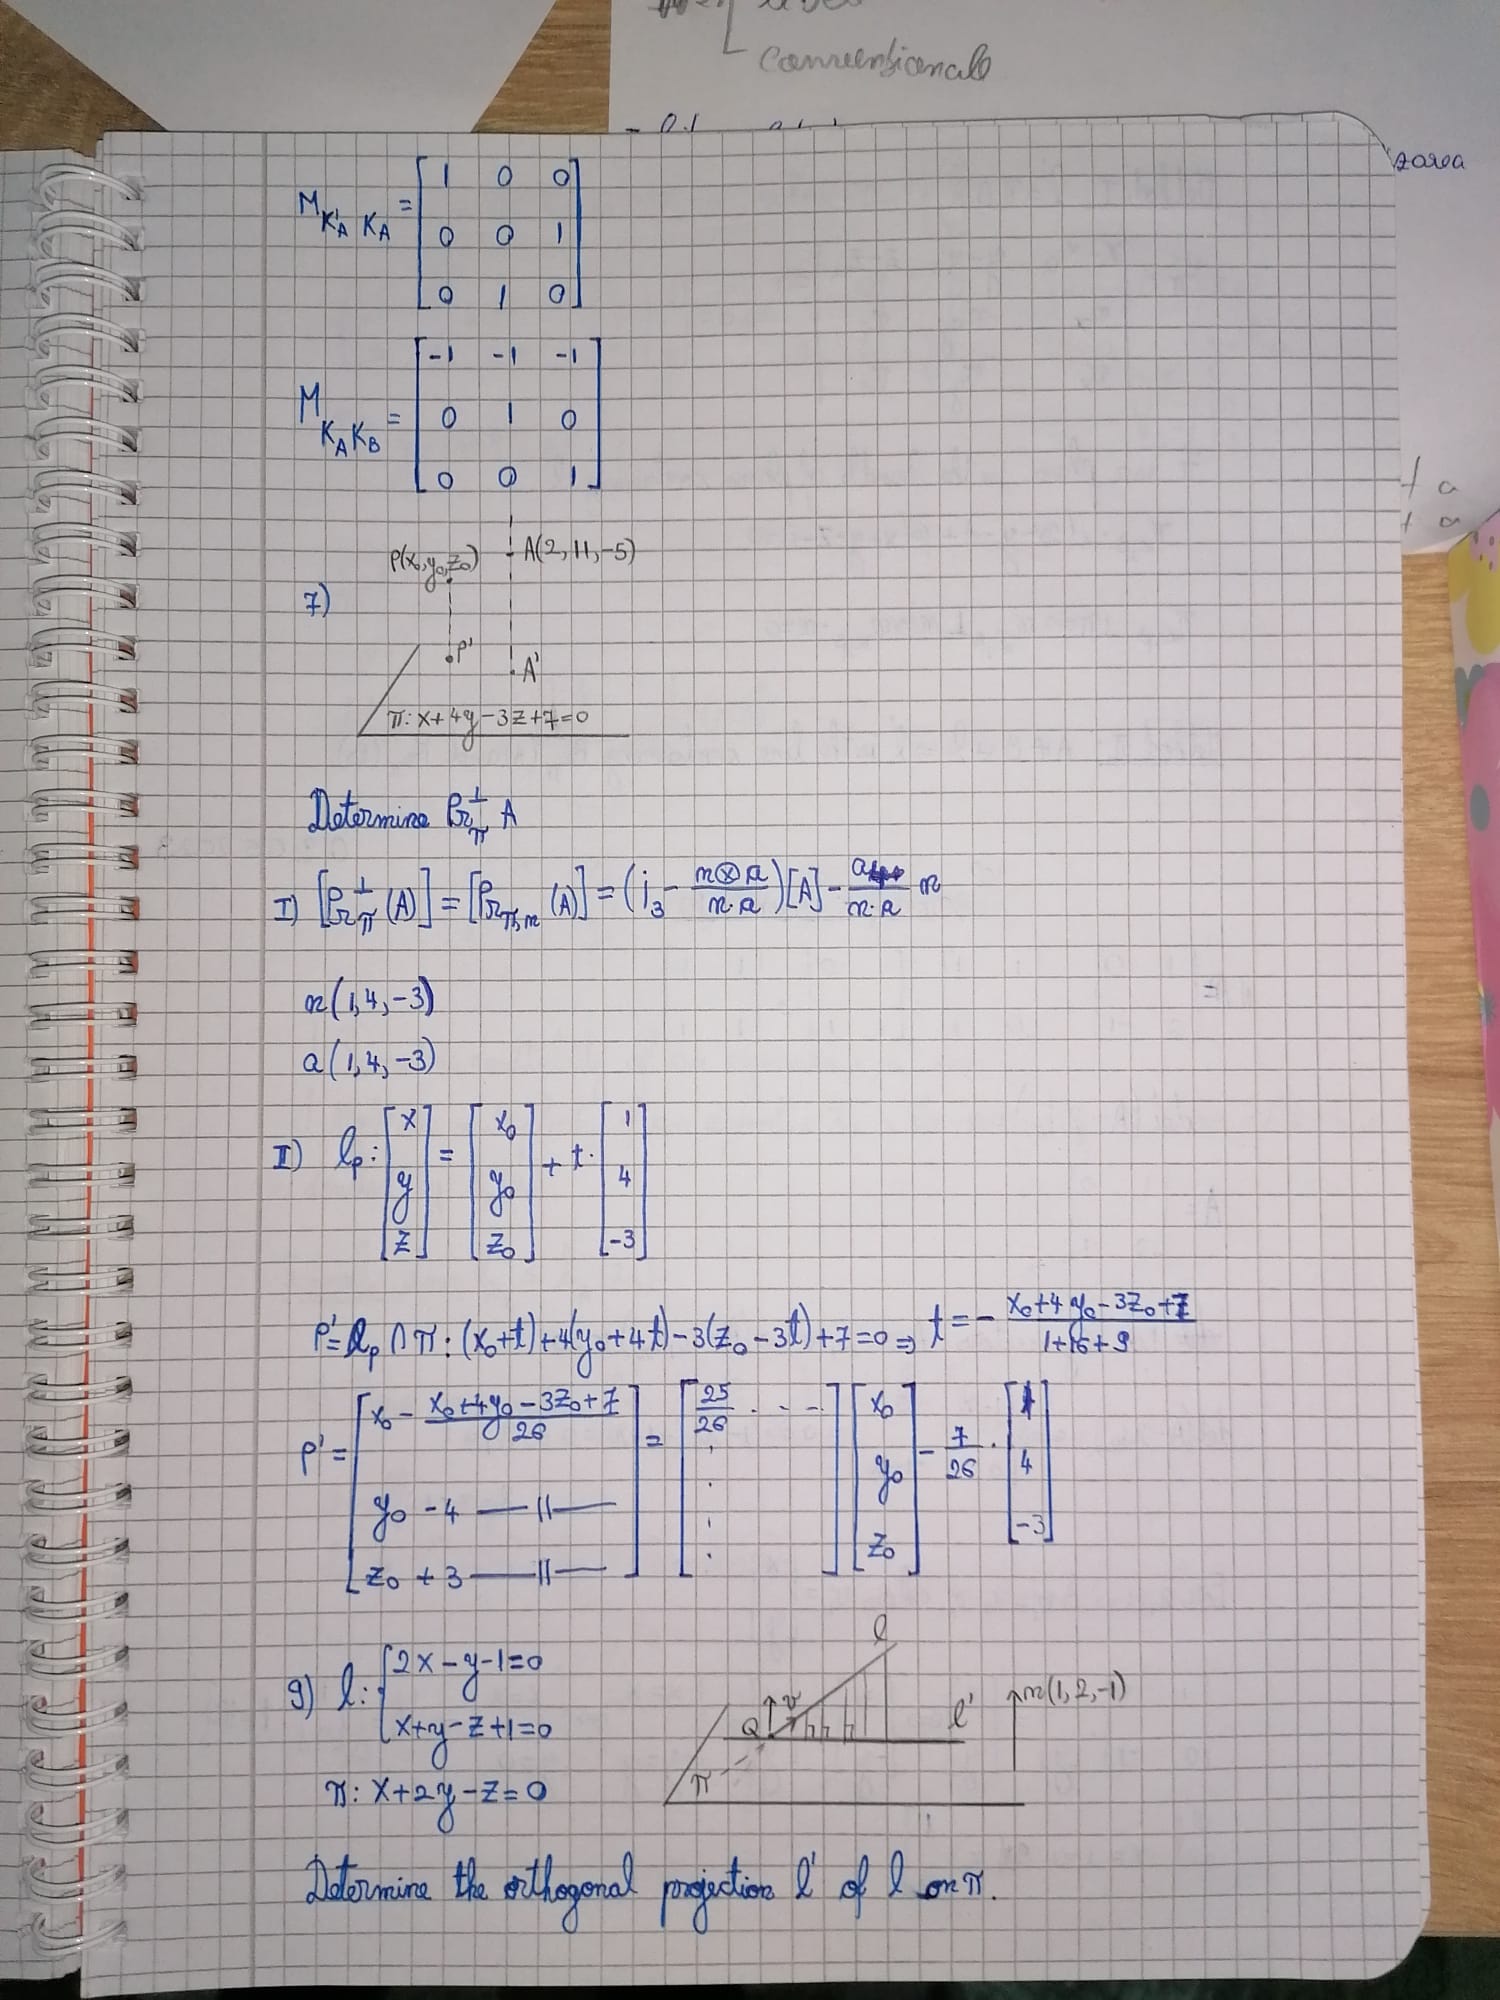 conventionale
zarea
M_{K'_A K_A} = [1 0 0
0 0 1
0 1 0]
M_{K_A K_B} = [-1 -1 -1
0 1 0
0 0 1]
P(x₀,y₀,z₀)
A(2,11,-5)
7)
P'
A'
π: x+4y-3z+7=0
Determine Pr^⊥_π A
I) [Pr^⊥_π (A)] = [Pr_{π,n} (A)] = (I₃ - n⊗a / n·a)[A] - a / n·a n
n(1,4,-3)
a(1,4,-3)
II) l_P: [x y z] = [x₀ y₀ z₀] + t·[1 4 -3]
P' = l_P ∩ π: (x₀+t)+4(y₀+4t)-3(z₀-3t)+7=0 ⇒ t = - x₀+4y₀-3z₀+7 / 1+16+9
P' = [x₀ - x₀+4y₀-3z₀+7 / 26
y₀ -4 —॥—
z₀ +3 —॥—] = [25/26 · - - · · · ·] [x₀ y₀ z₀] - 7/26 · [1 4 -3]
9) l: {2x-y-1=0
x+y-z+1=0
π: x+2y-z=0
l
Q
v
l'
n(1,2,-1)
π
Determine the orthogonal projection l' of l on π.